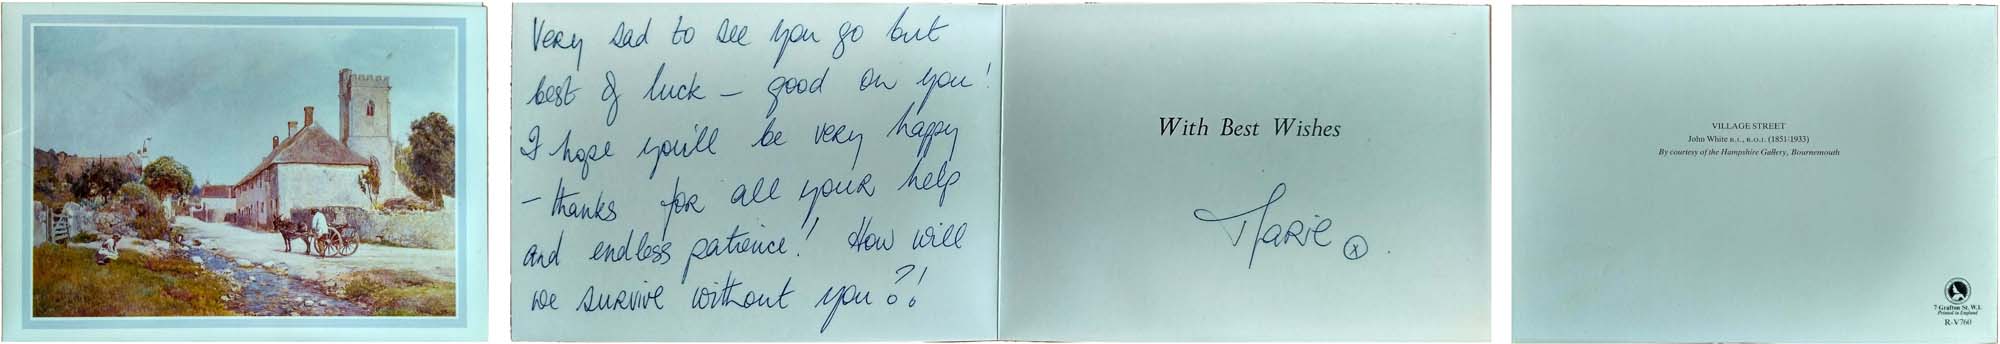 Very sad to see you go but
best of luck – good on you!
I hope you'll be very happy
– thanks for all your help
and endless patience! How will
we survive without you?!
With Best Wishes
Marie x
VILLAGE STREET
John White R.I., R.O.I. (1851-1933)
By courtesy of the Hampshire Gallery, Bournemouth
7 Grafton St. W.1.
Printed in England
R-V760